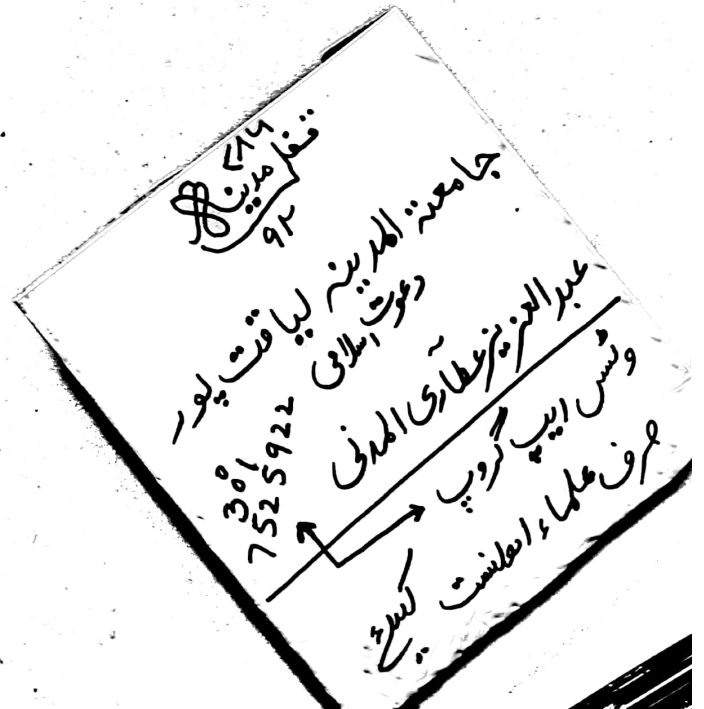 ۷۸۶
قفل مدینہ
۹۲
جامعۃ المدینہ لیاقت پور
دعوت اسلامی
عبدالعزیز عطاری المدنی
0301
7525922
وٹس ایپ گروپ
صرف علماء اہلسنت کیلئے